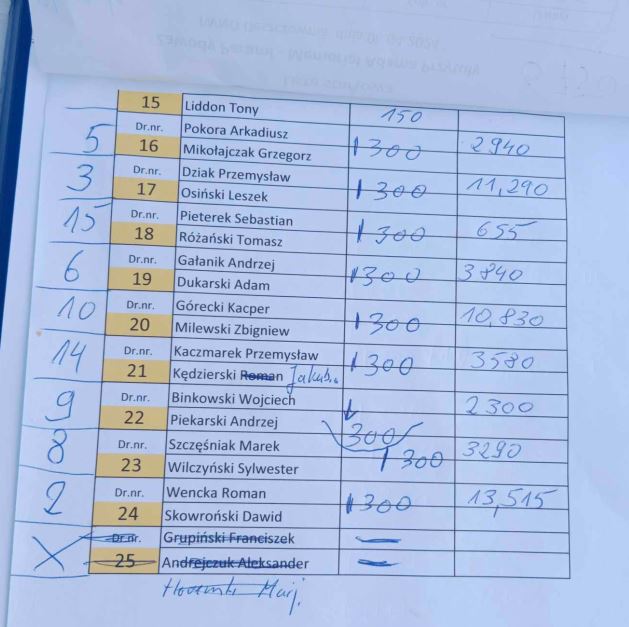 15 Liddon Tony 150
5 Dr.nr. Pokora Arkadiusz 1 300 2940
16 Mikołajczak Grzegorz
3 Dr.nr. Dziak Przemysław 1 300 11,290
17 Osiński Leszek
15 Dr.nr. Pieterek Sebastian 1 300 655
18 Różański Tomasz
6 Dr.nr. Gałanik Andrzej 1 300 3840
19 Dukarski Adam
10 Dr.nr. Górecki Kacper 1 300 10,830
20 Milewski Zbigniew
14 Dr.nr. Kaczmarek Przemysław 1 300 3580
21 Kędzierski Roman Jakub
9 Dr.nr. Binkowski Wojciech 2300
22 Piekarski Andrzej 300
8 Dr.nr. Szczęśniak Marek 1 300 3290
23 Wilczyński Sylwester
2 Dr.nr. Wencka Roman 1 300 13,515
24 Skowroński Dawid
X Dr.nr. Grupiński Franciszek —
25 Andrejczuk Aleksander —